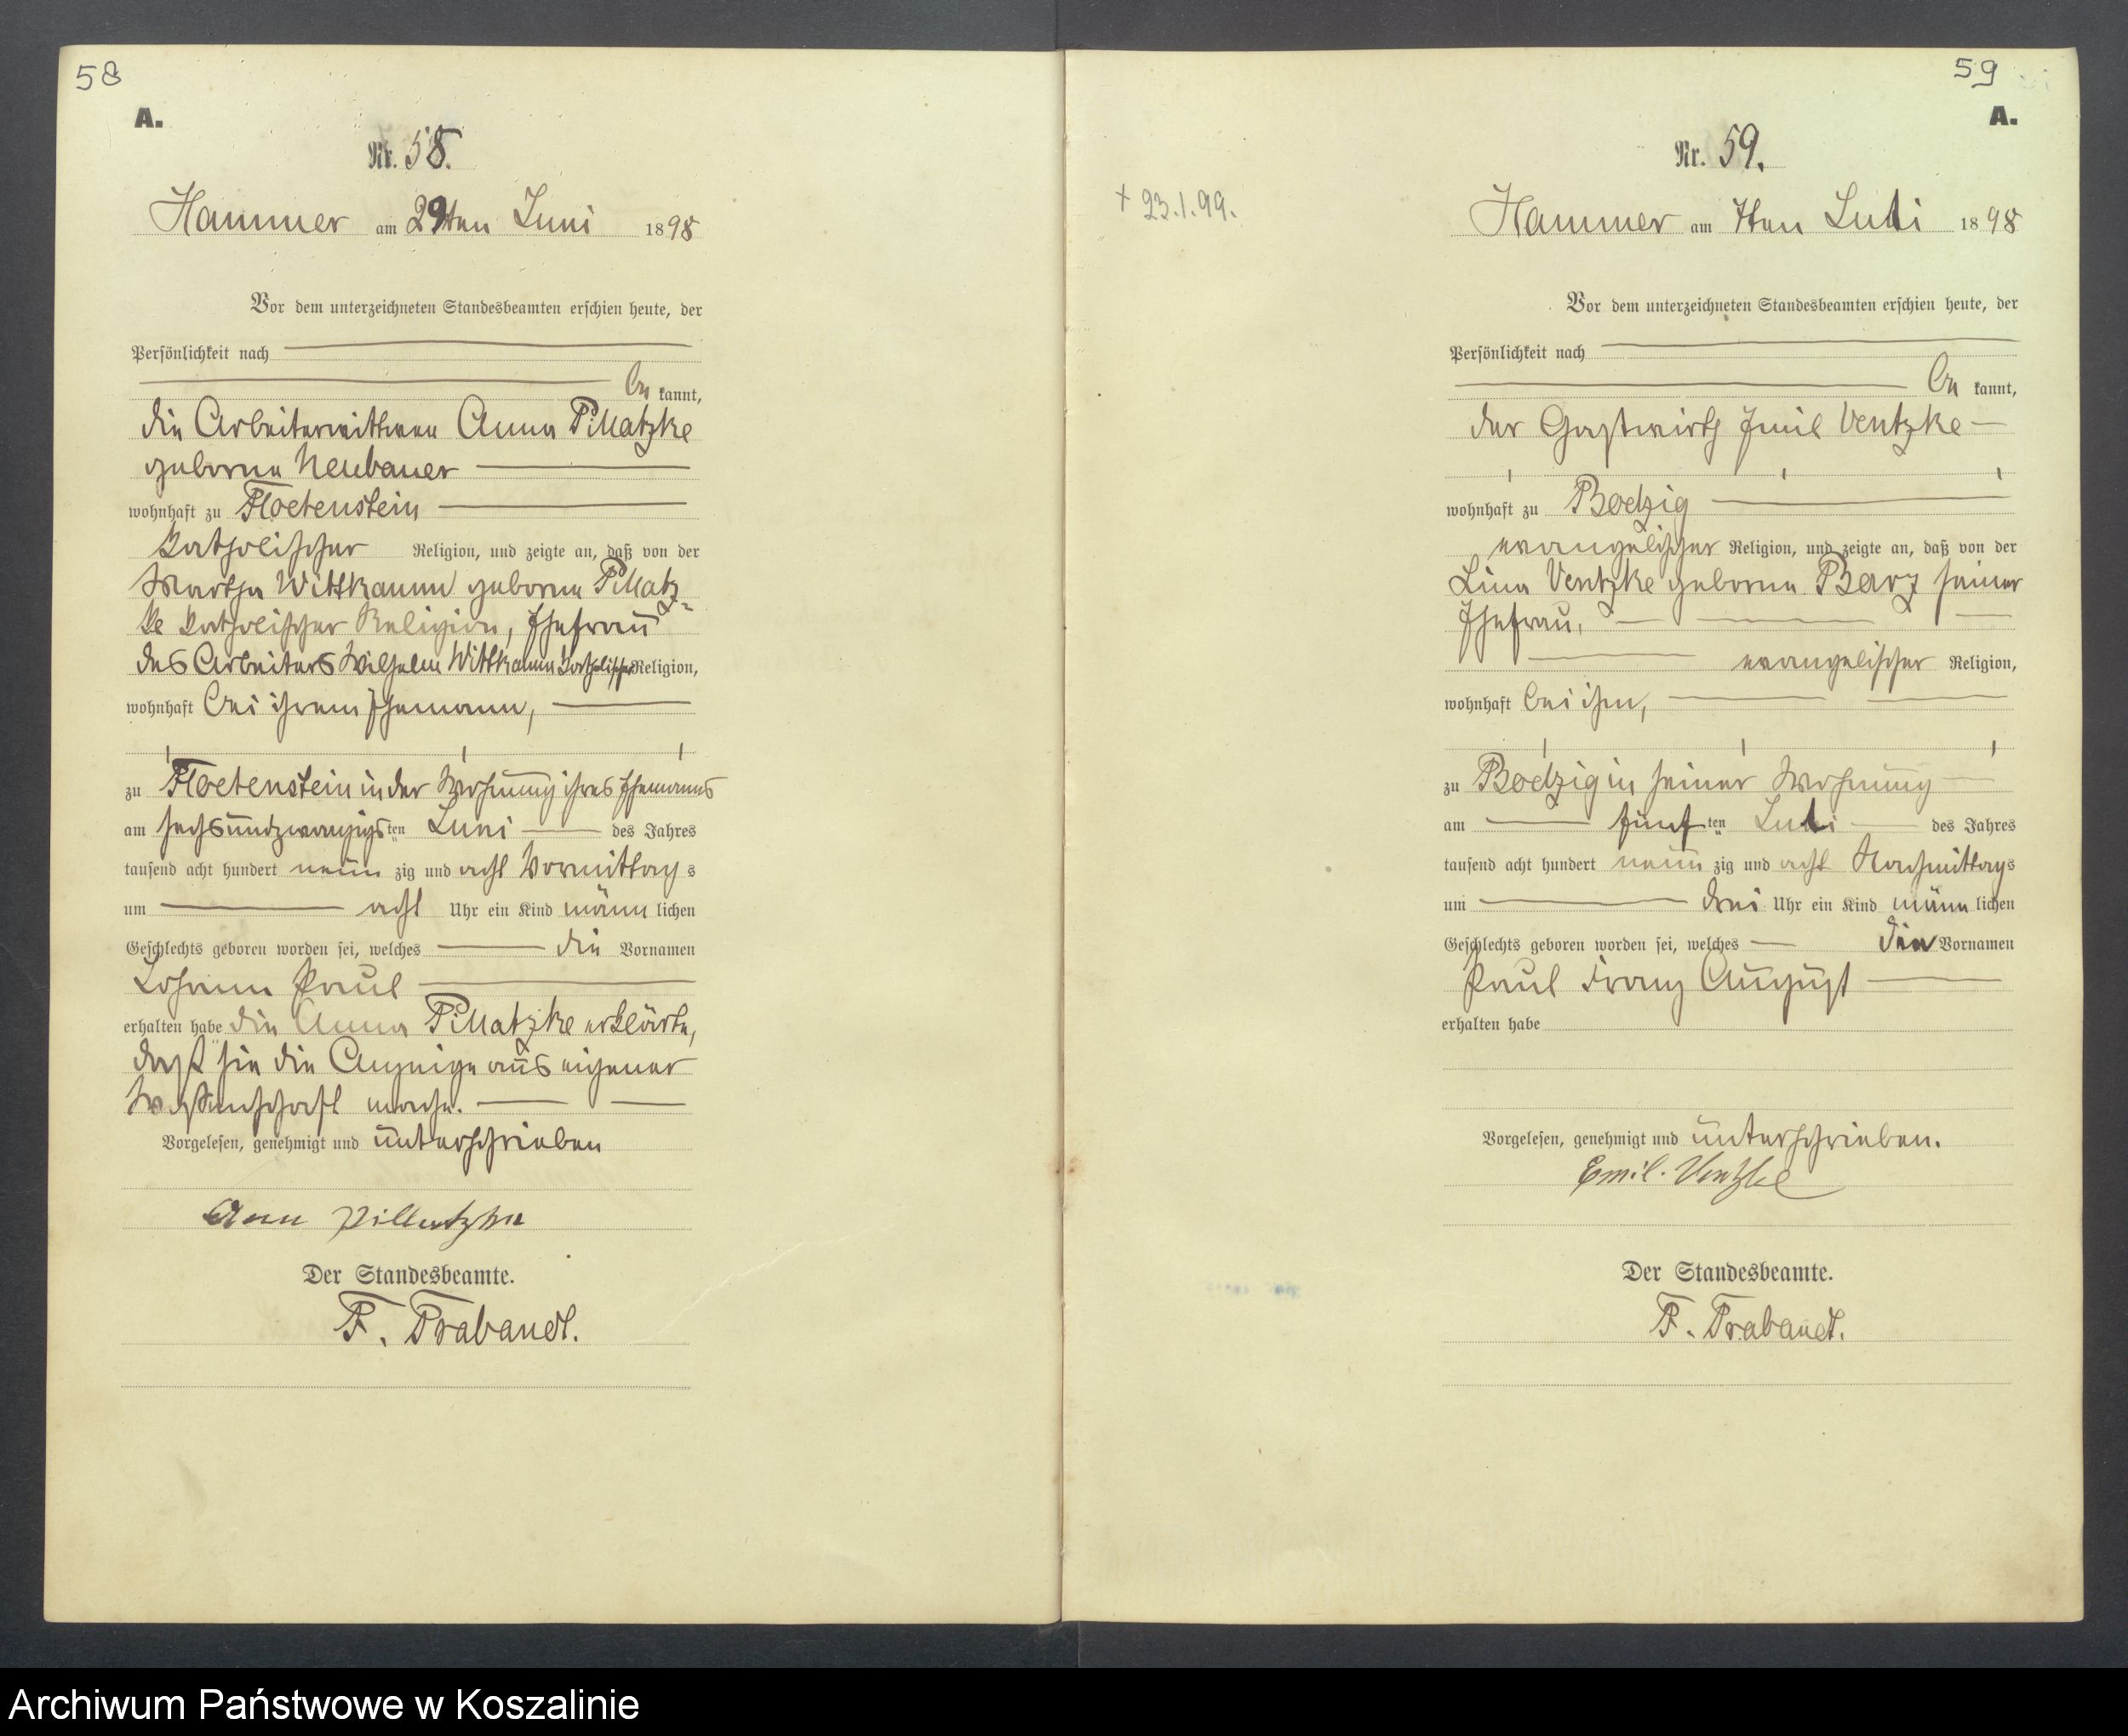 58
A.
Nr. 58.
Hammer am 29ten Juni 1898
Vor dem unterzeichneten Standesbeamten erschien heute, der
Persönlichkeit nach
be kannt,
die Arbeiterwittwe Anna Pillatzke
geborne Neubauer
wohnhaft zu Floetenstein
katholischer Religion, und zeigte an, daß von der
Martha Wittkamm geborne Pillatz-
ke katholischer Religion, Ehefrau
des Arbeiters Wilhelm Wittkamm katholischer Religion,
wohnhaft bei ihrem Ehemann,
zu Floetenstein in der Wohnung ihres Ehemanns
am sechsundzwanzigsten Juni des Jahres
tausend acht hundert neun zig und acht Vormittags
um acht Uhr ein Kind männlichen
Geschlechts geboren worden sei, welches die Vornamen
Johann Paul
erhalten habe die Anna Pillatzke erklärte,
daß sie die Anzeige aus eigener
Wissenschaft mache.
Vorgelesen, genehmigt und unterschrieben
Pillatzke
Der Standesbeamte.
F. Trabandt.
59
A.
Nr. 59.
+ 23.1.99.
Hammer am 7ten Juli 1898
Vor dem unterzeichneten Standesbeamten erschien heute, der
Persönlichkeit nach
be kannt,
der Gastwirth Emil Ventzke
wohnhaft zu Boelzig
evangelischer Religion, und zeigte an, daß von der
Lina Ventzke geborne seiner
Ehefrau,
evangelischer Religion,
wohnhaft bei ihm,
zu Boelzig in seiner Wohnung
am fünften Juli des Jahres
tausend acht hundert neun zig und acht Nachmittags
um drei Uhr ein Kind männlichen
Geschlechts geboren worden sei, welches die Vornamen
Paul Franz August
erhalten habe
Vorgelesen, genehmigt und unterschrieben.
Emil. Ventzke
Der Standesbeamte.
F. Trabandt.
Archiwum Państwowe w Koszalinie